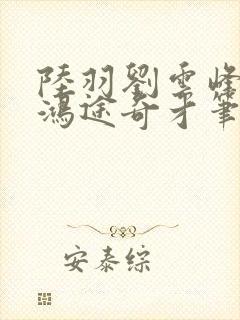 陸羽劉雲峰
鴻途奇才筆
安泰綜